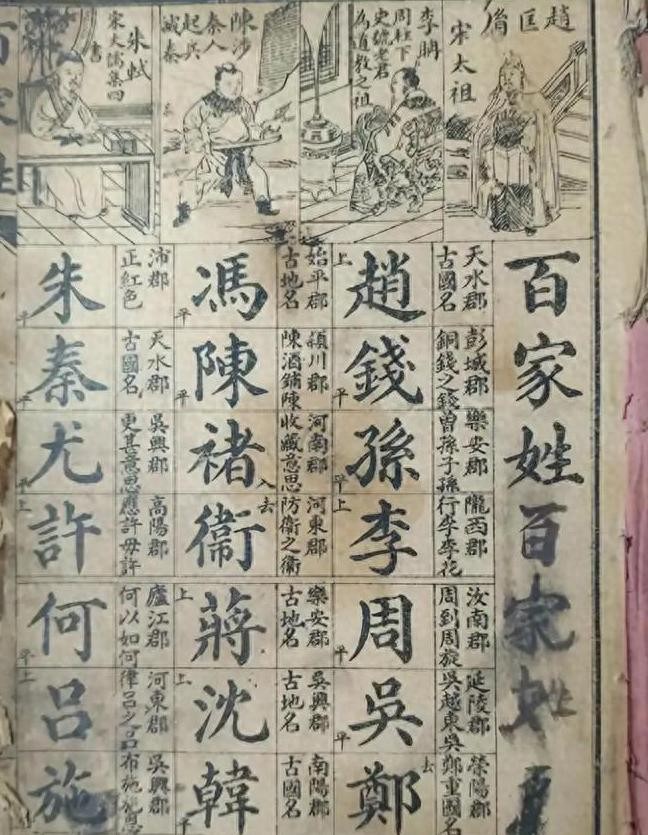 趙匡胤
宋太祖
李耼
周柱下
史號老君
為道教之祖
陳涉
秦人
起兵
滅秦
朱軾
宋大儒集四
書
百家姓百家姓
天水郡
古國名
趙
上
彭城郡
銅錢之錢
錢
平
樂安郡
曾孫子孫
孫
平
隴西郡
行李李花
李
上
汝南郡
周到周旋
周
平
延陵郡
吳越東吳
吳
平
滎陽郡
鄭重國名
鄭
去
始平郡
古地名
馮
平
潁川郡
陳酒鋪陳
陳
平
河南郡
收藏意思
褚
入
河東郡
防衛之衞
衞
去
樂安郡
古地名
蔣
上
吳興郡
古地名
沈
上
南陽郡
古國名
韓
平
沛郡
正紅色
朱
平
天水郡
古國名
秦
平
吳興郡
更甚意思
尤
平
高陽郡
應許毋許
許
上
廬江郡
何以如何
何
平
河東郡
律呂之呂
呂
上
吳興郡
布施施恩
施
百家姓